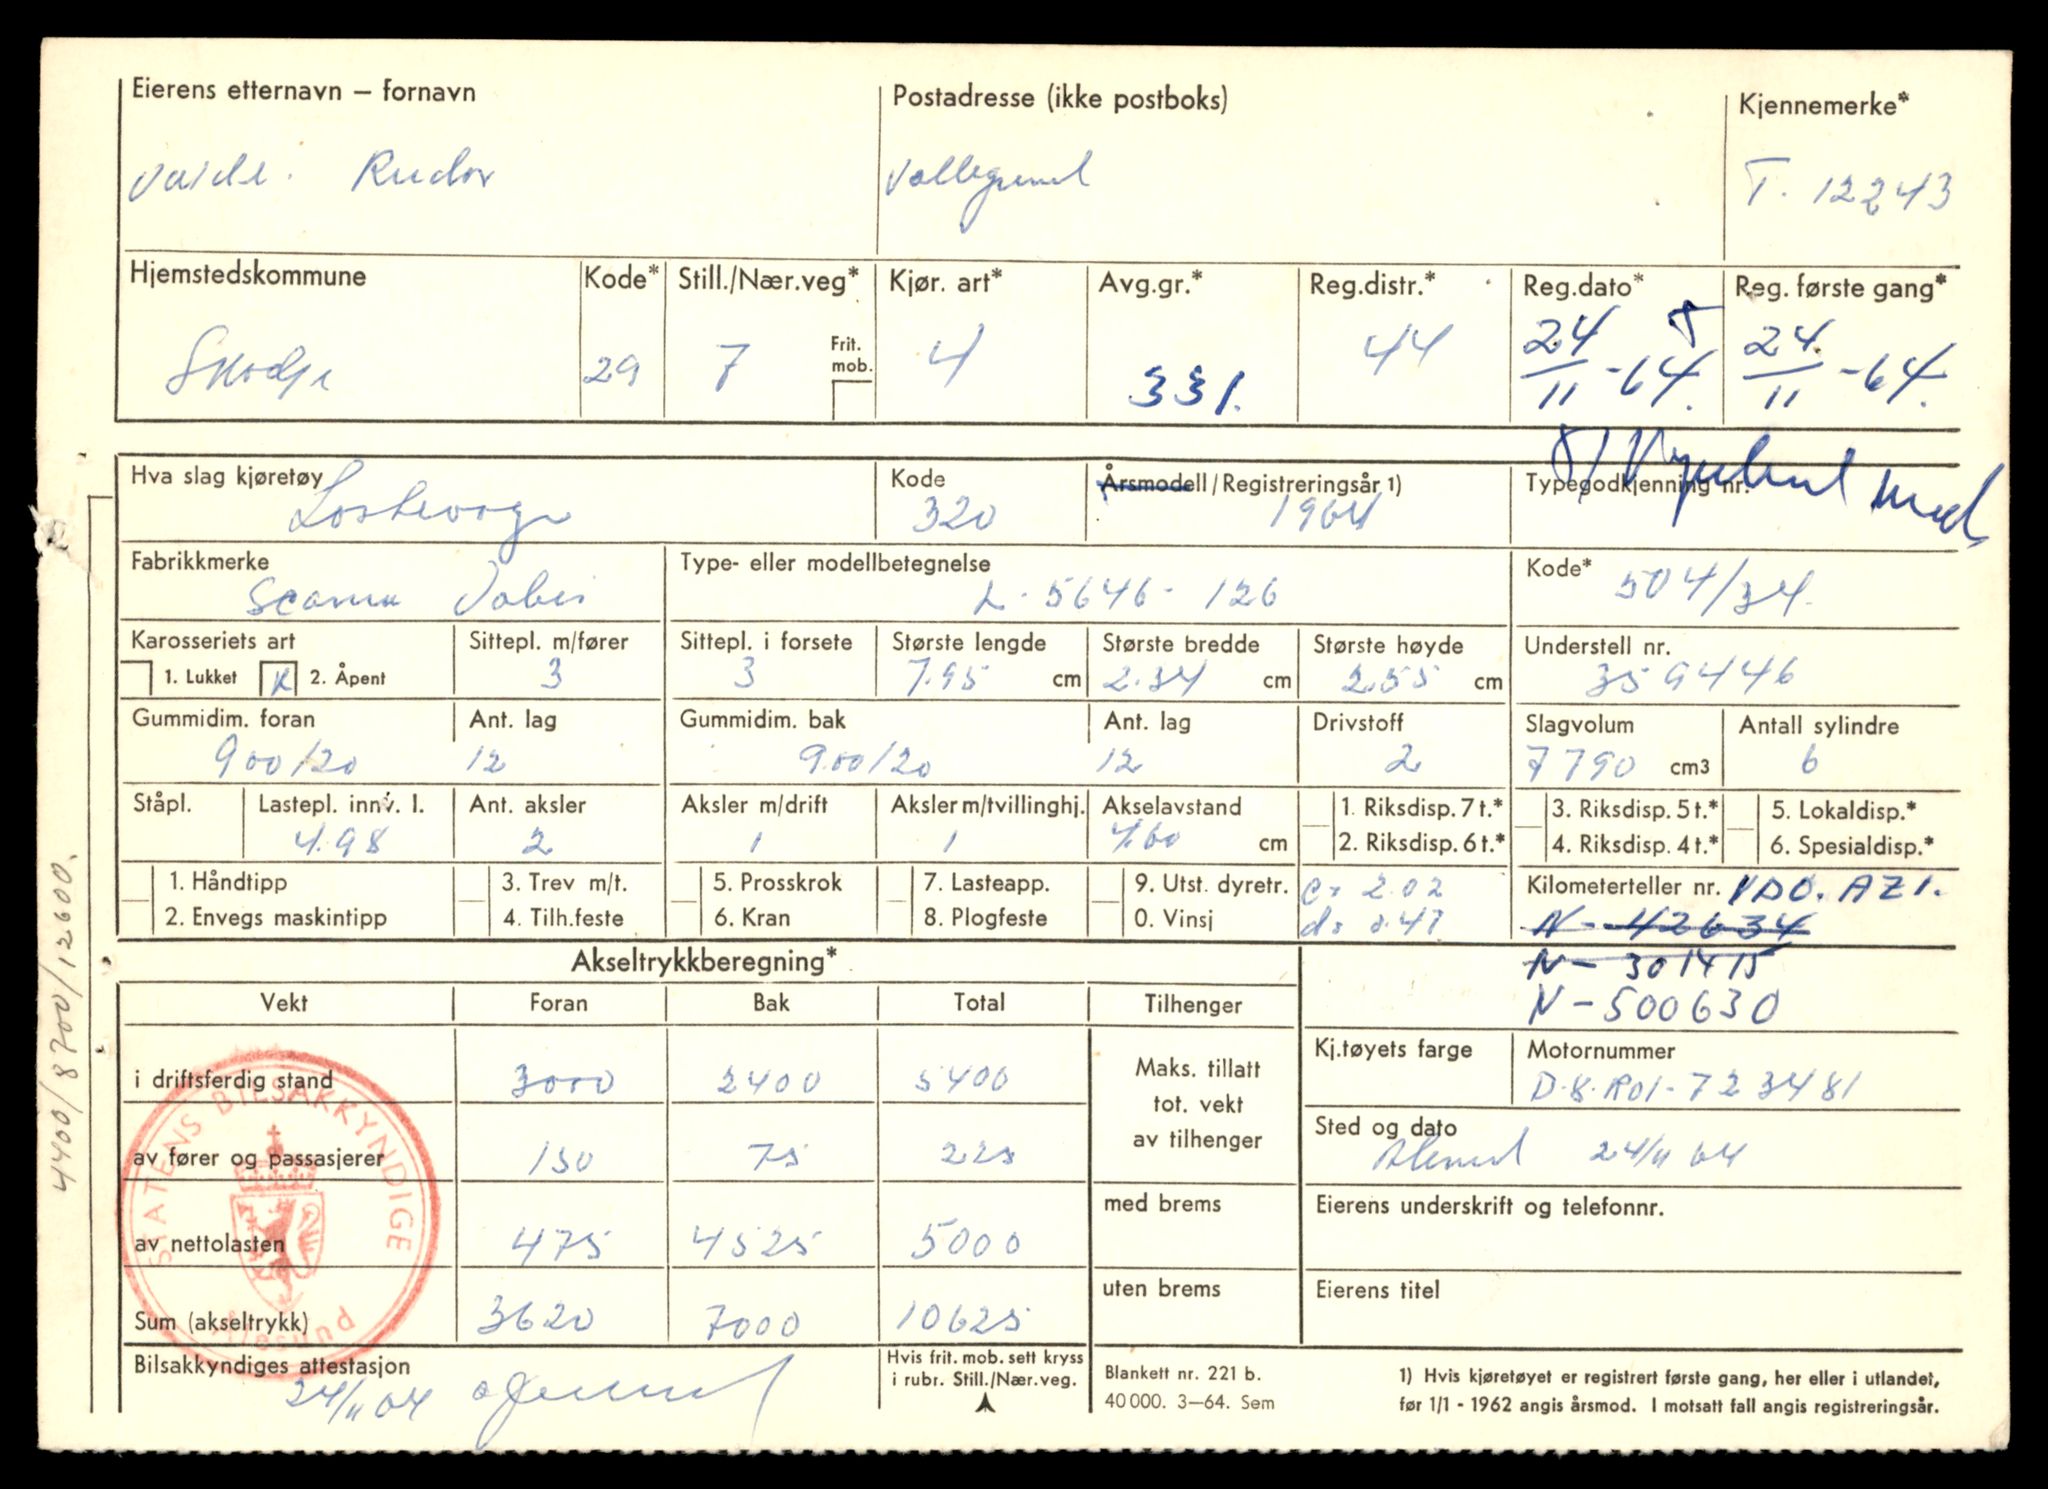 Eierens etternavn – fornavn
Postadresse (ikke postboks)
Kjennemerke*
Valde. Rudor
Vallegrend
T. 12243
Hjemstedskommune
Kode*
Still./Nær.veg*
Kjør. art*
Avg.gr.*
Reg.distr.*
Reg.dato*
Reg. første gang*
Skodje
29
7
Frit. mob.
4
331.
44
24/11 -64.
24/11 -64.
Hva slag kjøretøy
Kode
Årsmodell/Registreringsår 1)
Typegodkjenning nr.
med
Lastevogn
320
1964
Fabrikkmerke
Type- eller modellbetegnelse
Kode*
Scania Vabis
L. 5646- 126
504/34.
Karosseriets art
Sittepl. m/fører
Sittepl. i forsete
Største lengde
Største bredde
Største høyde
Understell nr.
1. Lukket
x 2. Åpent
3
3
7.95 cm
2.34 cm
2.55 cm
359446
Gummidim. foran
Ant. lag
Gummidim. bak
Ant. lag
Drivstoff
Slagvolum
Antall sylindre
900/20
12
9.00/20
12
2
7790 cm3
6
Ståpl.
Lastepl. innv. l.
Ant. aksler
Aksler m/drift
Aksler m/tvillinghj.
Akselavstand
1. Riksdisp. 7 t.*
3. Riksdisp. 5 t.*
5. Lokaldisp.*
4.98
2
1
1
4.60 cm
2. Riksdisp. 6 t.*
4. Riksdisp. 4 t.*
6. Spesialdisp.*
1. Håndtipp
3. Trev m/t.
5. Prosskrok
7. Lasteapp.
9. Utst. dyretr.
c= 2.02
Kilometerteller nr. VDO. AZ1.
2. Envegs maskintipp
4. Tilh.feste
6. Kran
8. Plogfeste
0. Vinsj
d= 0.47
N- 42634
N- 301415
N-500630
Akseltrykkberegning*
Vekt
Foran
Bak
Total
Tilhenger
i driftsferdig stand
3000
2400
5400
Maks. tillatt
tot. vekt
av tilhenger
Kj.tøyets farge
Motornummer
D.8.R01-723481
av fører og passasjerer
150
75
225
Sted og dato
Ålesund 24/11 64
av nettolasten
475
4525
5000
med brems
Eierens underskrift og telefonnr.
Sum (akseltrykk)
3620
7000
10625
uten brems
Eierens titel
Bilsakkyndiges attestasjon
24/11 64
Hvis frit. mob. sett kryss
i rubr. Still./Nær.veg.
Blankett nr. 221 b.
40 000. 3–64. Sem
1) Hvis kjøretøyet er registrert første gang, her eller i utlandet,
før 1/1 - 1962 angis årsmod. I motsatt fall angis registreringsår.
STATENS BILSAKKYNDIGE
Ålesund
4400/8700/12600.